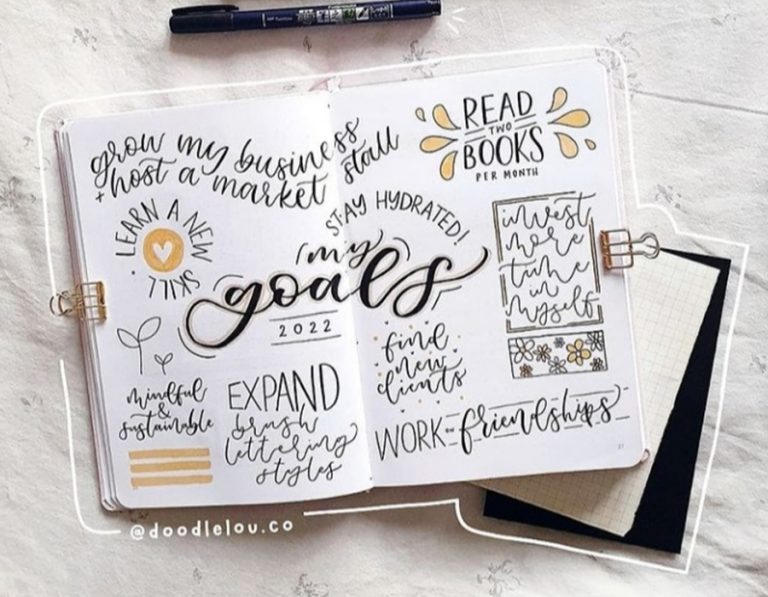 grow my business
+ host a market stall
READ
TWO
BOOKS
PER MONTH
LEARN A NEW
SKILL
STAY HYDRATED!
my
goals
2022
invest
more
time
in
myself
find
new
clients
mindful
&
sustainable
EXPAND
brush
lettering
styles
WORK on friendships
@doodlelou.co